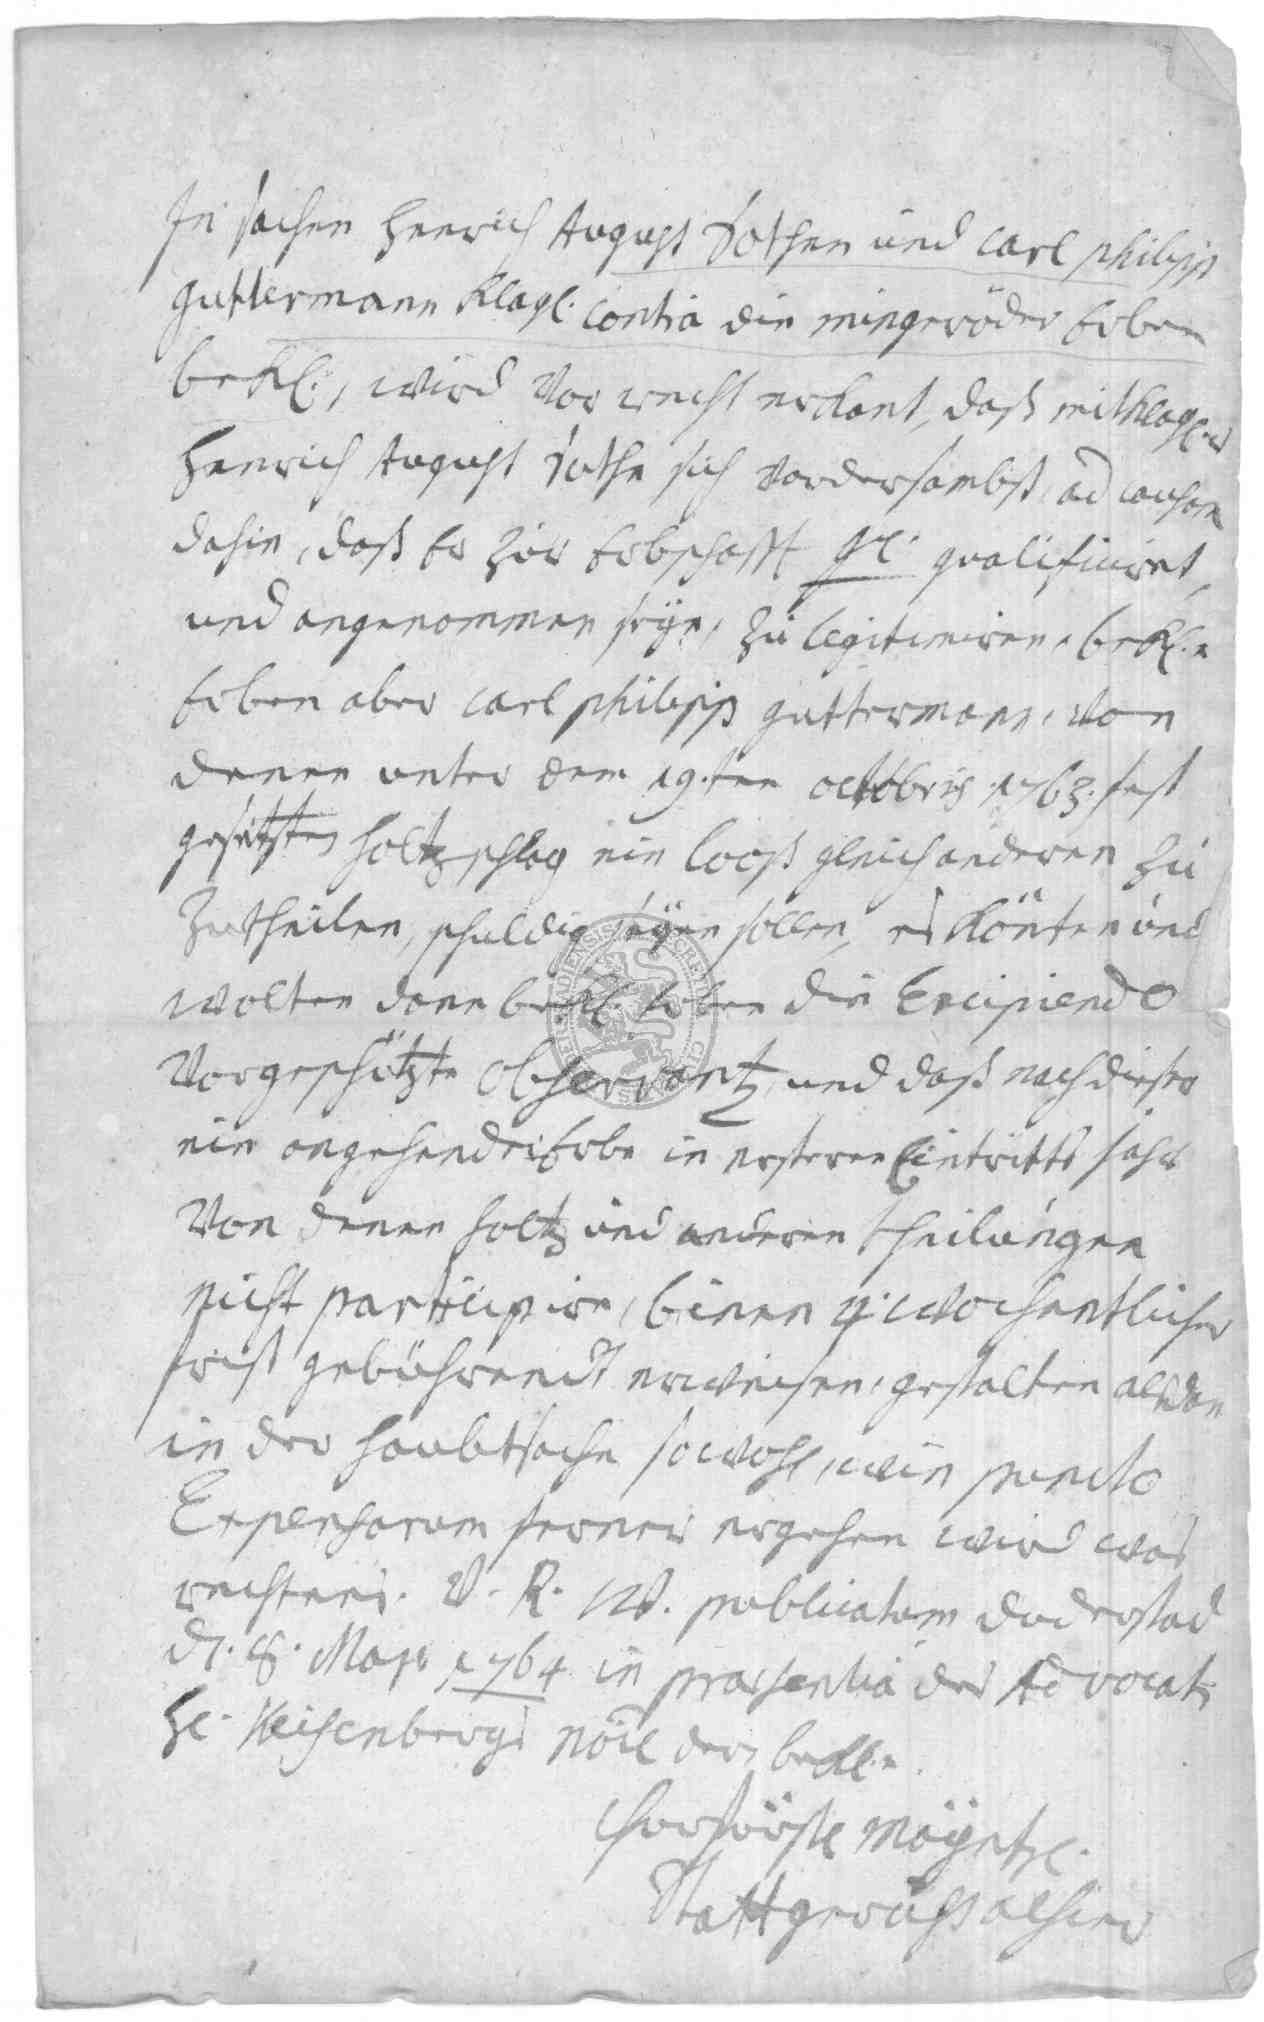 In sachen Henrich August Rothen und Carl Philipp
Guttermann Klägl. contra die Mingeröder Erben
bekl., wird vor recht erkant, daß mitklagl.r
Henrich August Rothe sich vordersambst, ad causam
dahin, daß Er zur Erbschafft gl. qualificiret,
und angenommen seye, zu legitimiren, bekl.e
Erben aber Carl Philipp Guttermann, von
denen unter dem 19.ten octobris 1763. fest
gesetzten holtzschlag ein looß gleich anderen zu
zutheilen, schuldig seyen sollen, es könten und
wolten dann bekl. Erben die Excipiendo
vorgeschützte observantz, und daß nach dieser
ein angehender Erbe in ersteren Eintritts jahr
von denen holtz und anderen theilungen
nicht participire, binnen 4. wochentlicher
frist gebührendt erweisen, gestalten alsdan
in der haubtsache sowohl, wie in puncto
Expensarum ferner ergehen wird was
rechtens. V. R. W. publicatum Duderstad
d. 8. May 1764 in praesentia des Advocati
H. Weisenbergs nõie der bekl.n
Churfürstl Mayntzl.
Stattgericht alhier
SIGILLUM